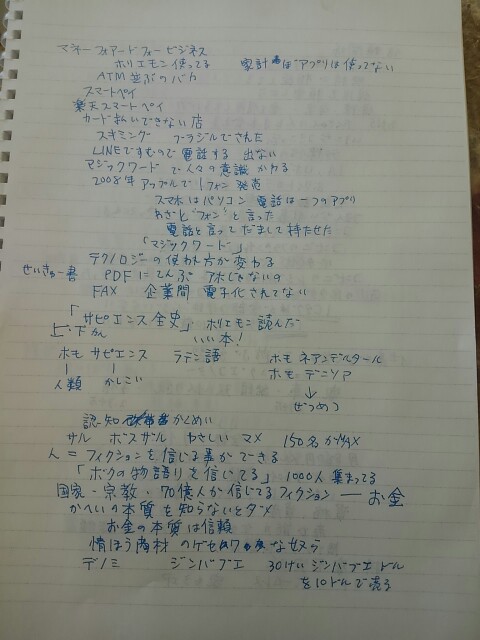 マネーフォアードフォービジネス
ホリエモン使ってる　家計ぼアプリは使ってない
ATM並ぶのバカ
スマートペイ
楽天スマートペイ
カード払いできない店
スキミング　ブラジルでされた
LINEですむので電話する　出ない
マジックワードで人々の意識かわる
2008年アップルでiフォン発売
スマホはパソコン　電話は一つのアプリ
わざと「フォン」と言った
電話と言ってだまして持たせた
「マジックワード」
テクノロジーの使われ方が変わる
せいきゅー書　PDFにてんぷ　アホじゃないの
FAX　企業間　電子化されてない
「サピエンス全史」ホリエモン読んだ
上・下かん　いい本！
ホモ サピエンス　ラテン語　ホモ ネアンデルタール
人類　かしこい　ホモ デニソア
↓
ぜつめつ
認知かくめい
サル　ボスザル　やさしい　マメ　150名がMAX
人＝フィクションを信じる事ができる
「ボクの物語りを信じてる」1000人集まってる
国家・宗教・70億人が信じてるフィクション ― お金
かへいの本質を知らないとダメ
お金の本質は信頼
情ほう商材の な奴ら
デノミ　ジンバブエ　30けいジンバブエドル
を10ドルで売る